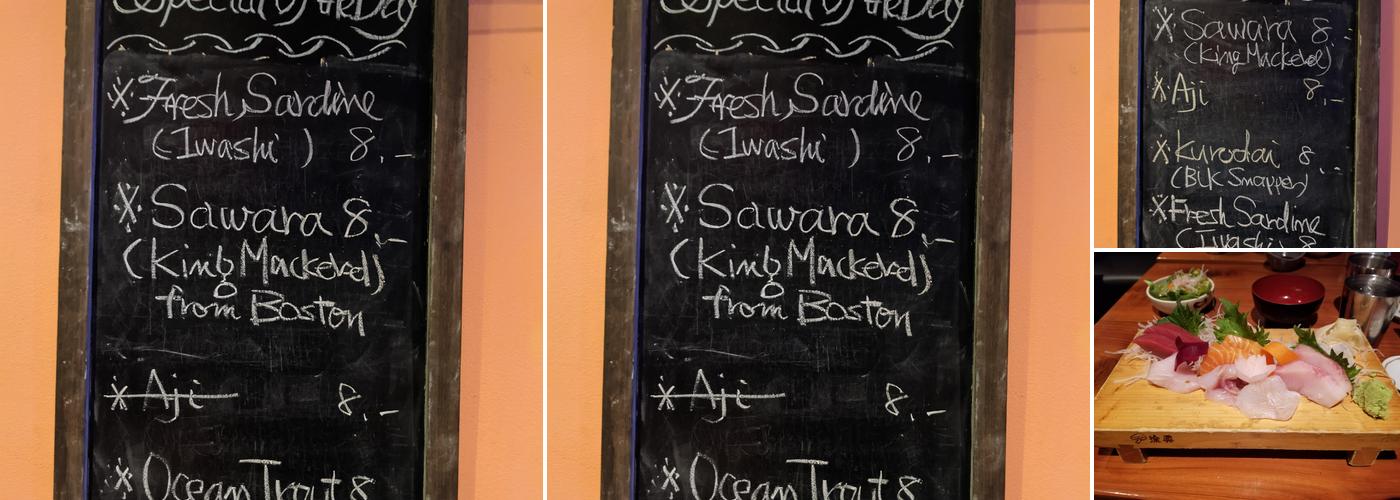 Special of the Day
* Fresh Sardine
(Iwashi) 8.-
* Sawara 8.-
(King Mackerel)
from Boston
* Aji 8.-
* Ocean Trout 8
Special of the Day
* Fresh Sardine
(Iwashi) 8.-
* Sawara 8.-
(King Mackerel)
from Boston
* Aji 8.-
* Ocean Trout 8
* Sawara 8.-
(King Mackerel)
* Aji 8.-
* Kurodai 8.-
(Blk Snapper)
* Fresh Sardine
(Iwashi) 8